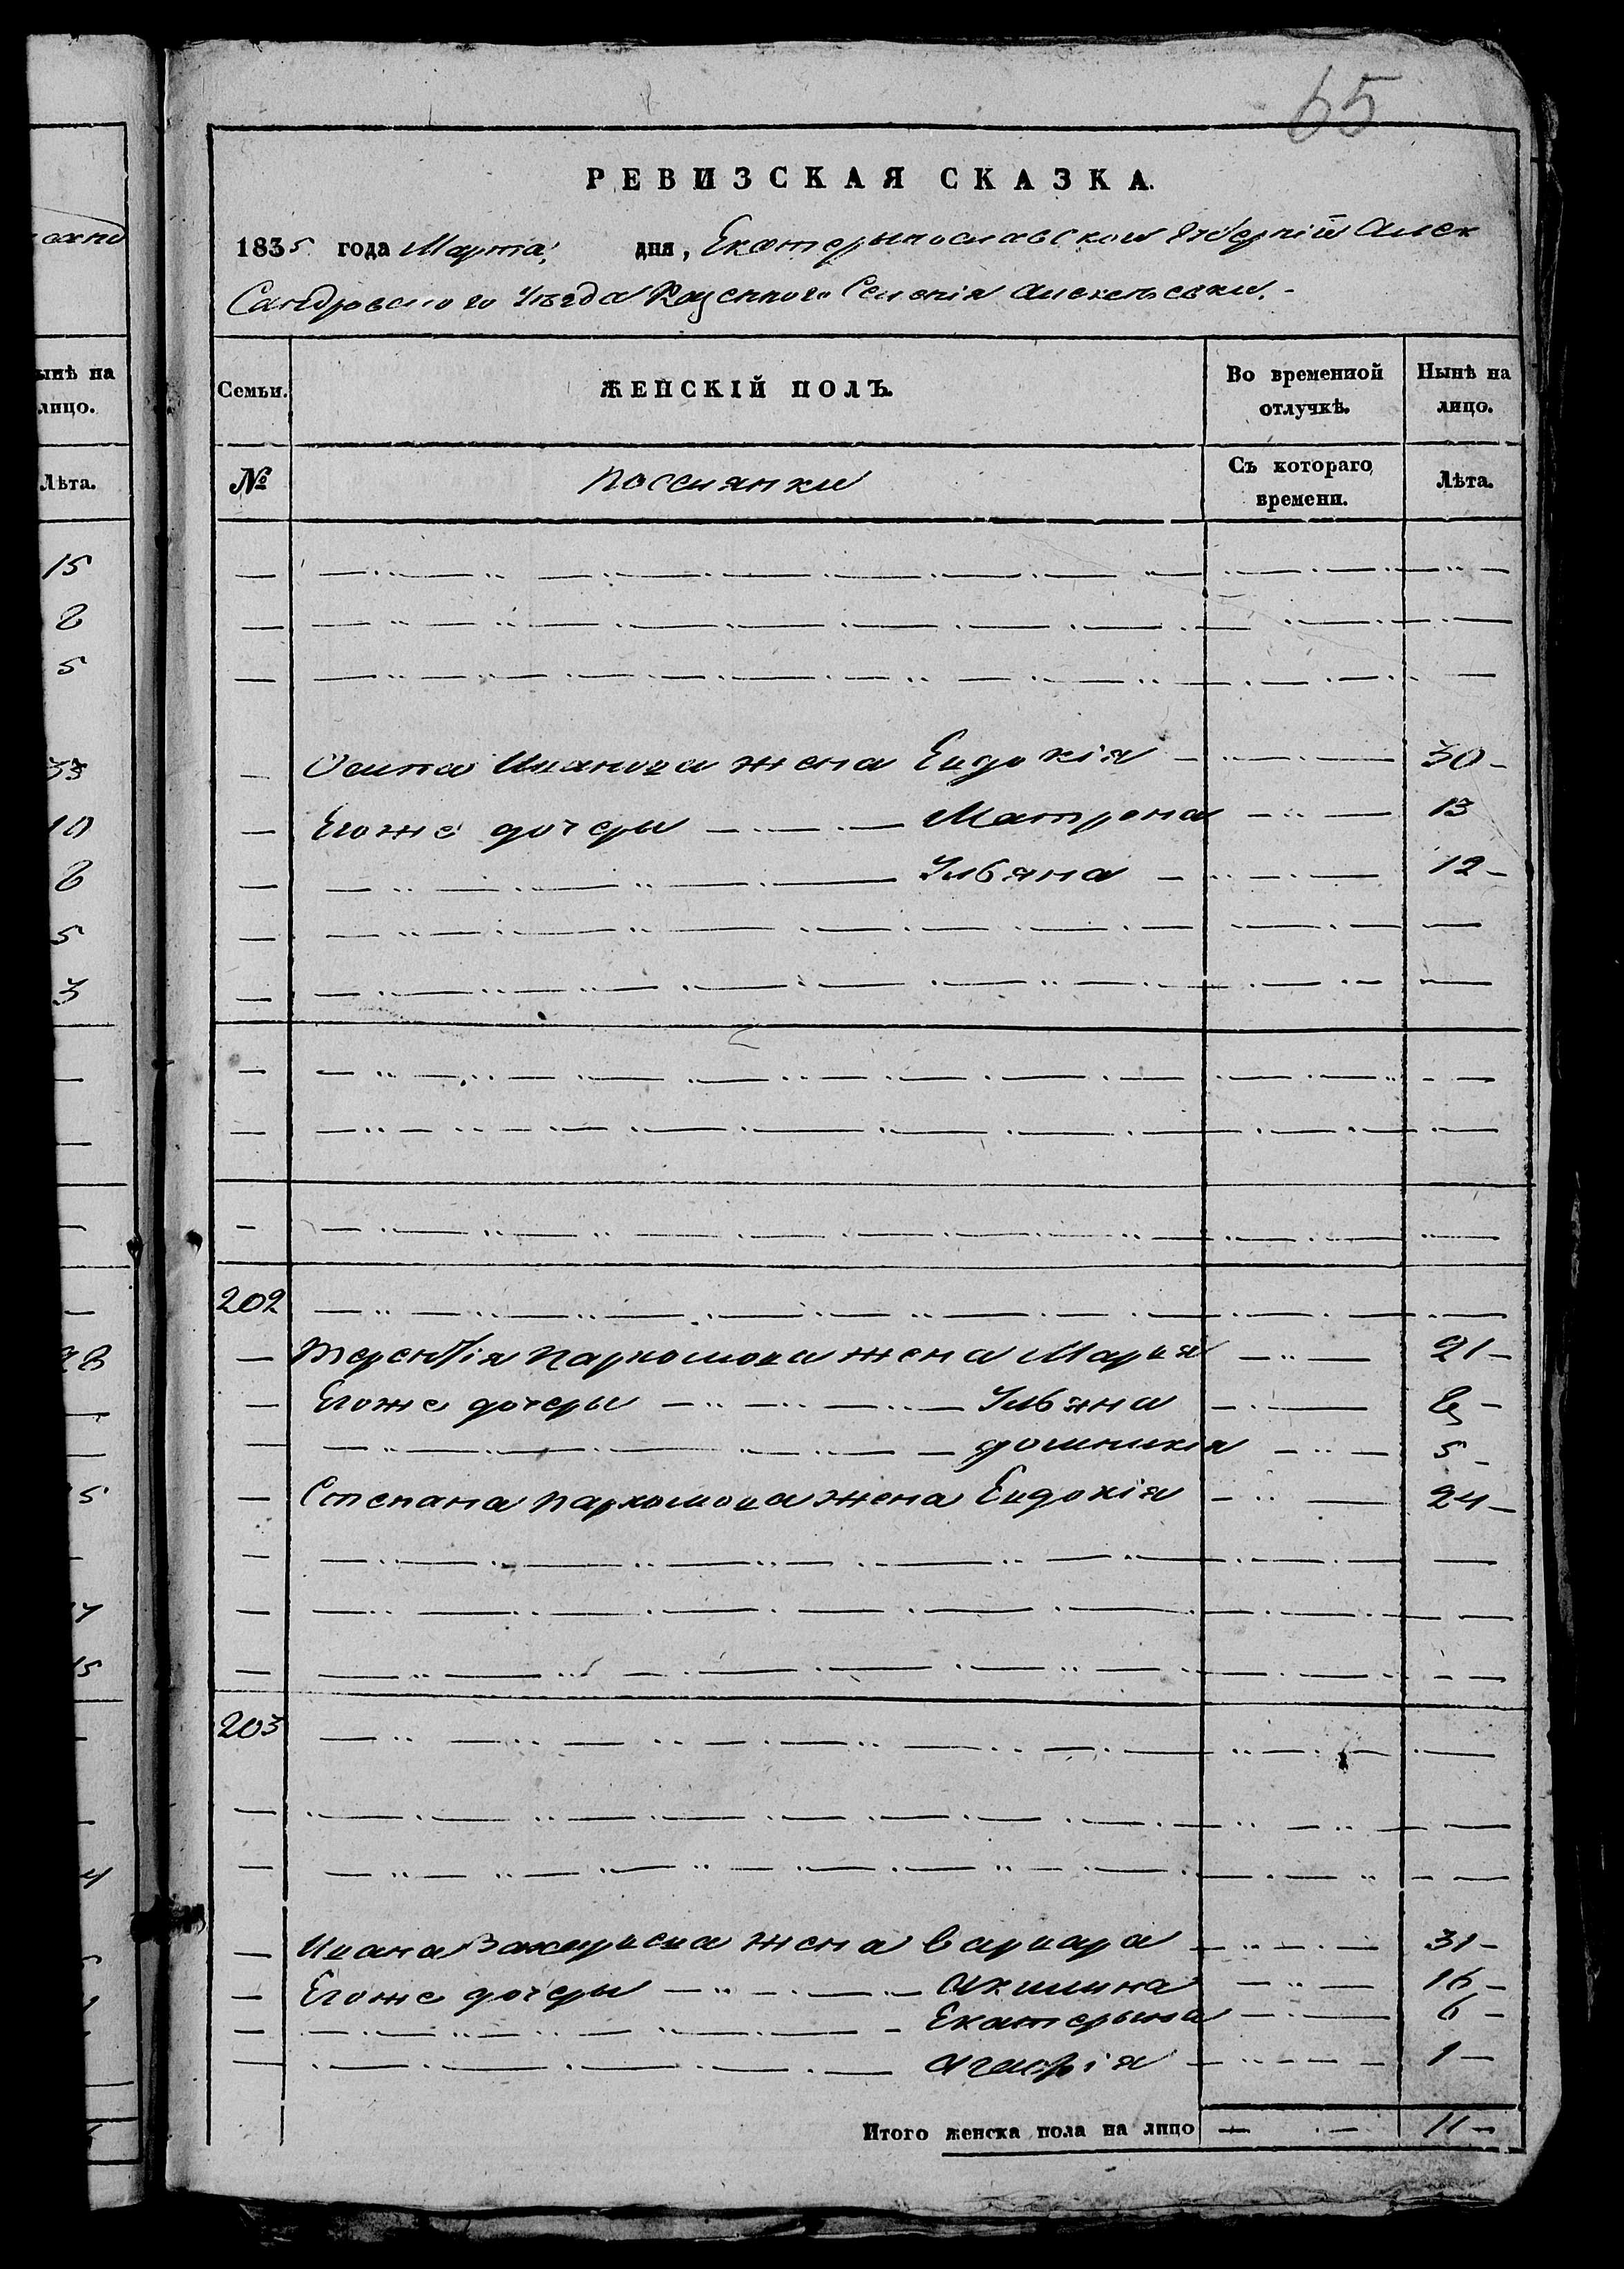 65
РЕВИЗСКАЯ СКАЗКА.
1835 года Марта, дня, Екатерынославской Губерніи Алек
Сандровского Уѣзда Казенного Селенія
ынѣ на лицо.
Лѣта.
15
8
5
33
10
8
5
3
Семьи. ЖЕНСКІЙ ПОЛЪ. Во временной отлучкѣ. Нынѣ на лицо.
№ Поселянки Съ котораго времени. Лѣта.
Осипа Иванова жена Евдокія 30
Егоже дочеры Матрона 13
Ульяна 12
202
Терентія Пархомова жена Марія 21
Егоже дочеры Ульяна 8
Домникія 5
Степана Пархомова жена Евдокія 24
203
Ивана жена Варвара 31
Егоже дочеры Акилина 16
Екатерына 6
Агафія 1
Итого женска пола на лицо 11